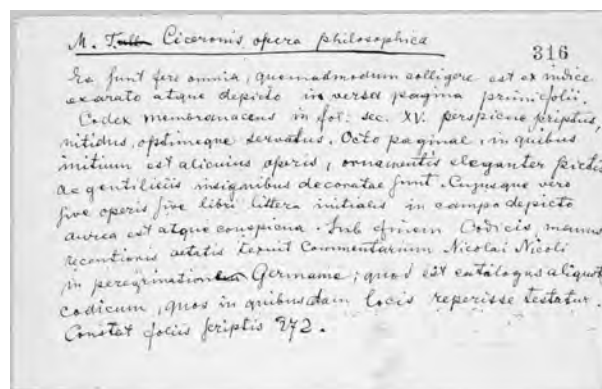 M. Tull Ciceronis opera philosophica
316
Ea sunt fere omnia, quemadmodum colligere est ex indice
exarato atque depicto in versa pagina primi folii.
Codex membranaceus in fol: sec. XV. perspicue scriptus,
nitidus, optimeque servatus. Octo paginae, in quibus
initium est alicuius operis, ornamentis eleganter pictis
ac gentiliciis insignibus decoratae sunt. Cujusque vero
sive operis sive libri littera initialis in campo depicto
aurea est atque conspicua. Sub finem Codicis, manus
recentioris aetatis texuit Commentarium Nicolai Nicoli
in peregrinatione Germame; quod est catalogus aliquot
codicum, quos in quibusdam locis reperisse testatur.
Constat foliis scriptis 272.